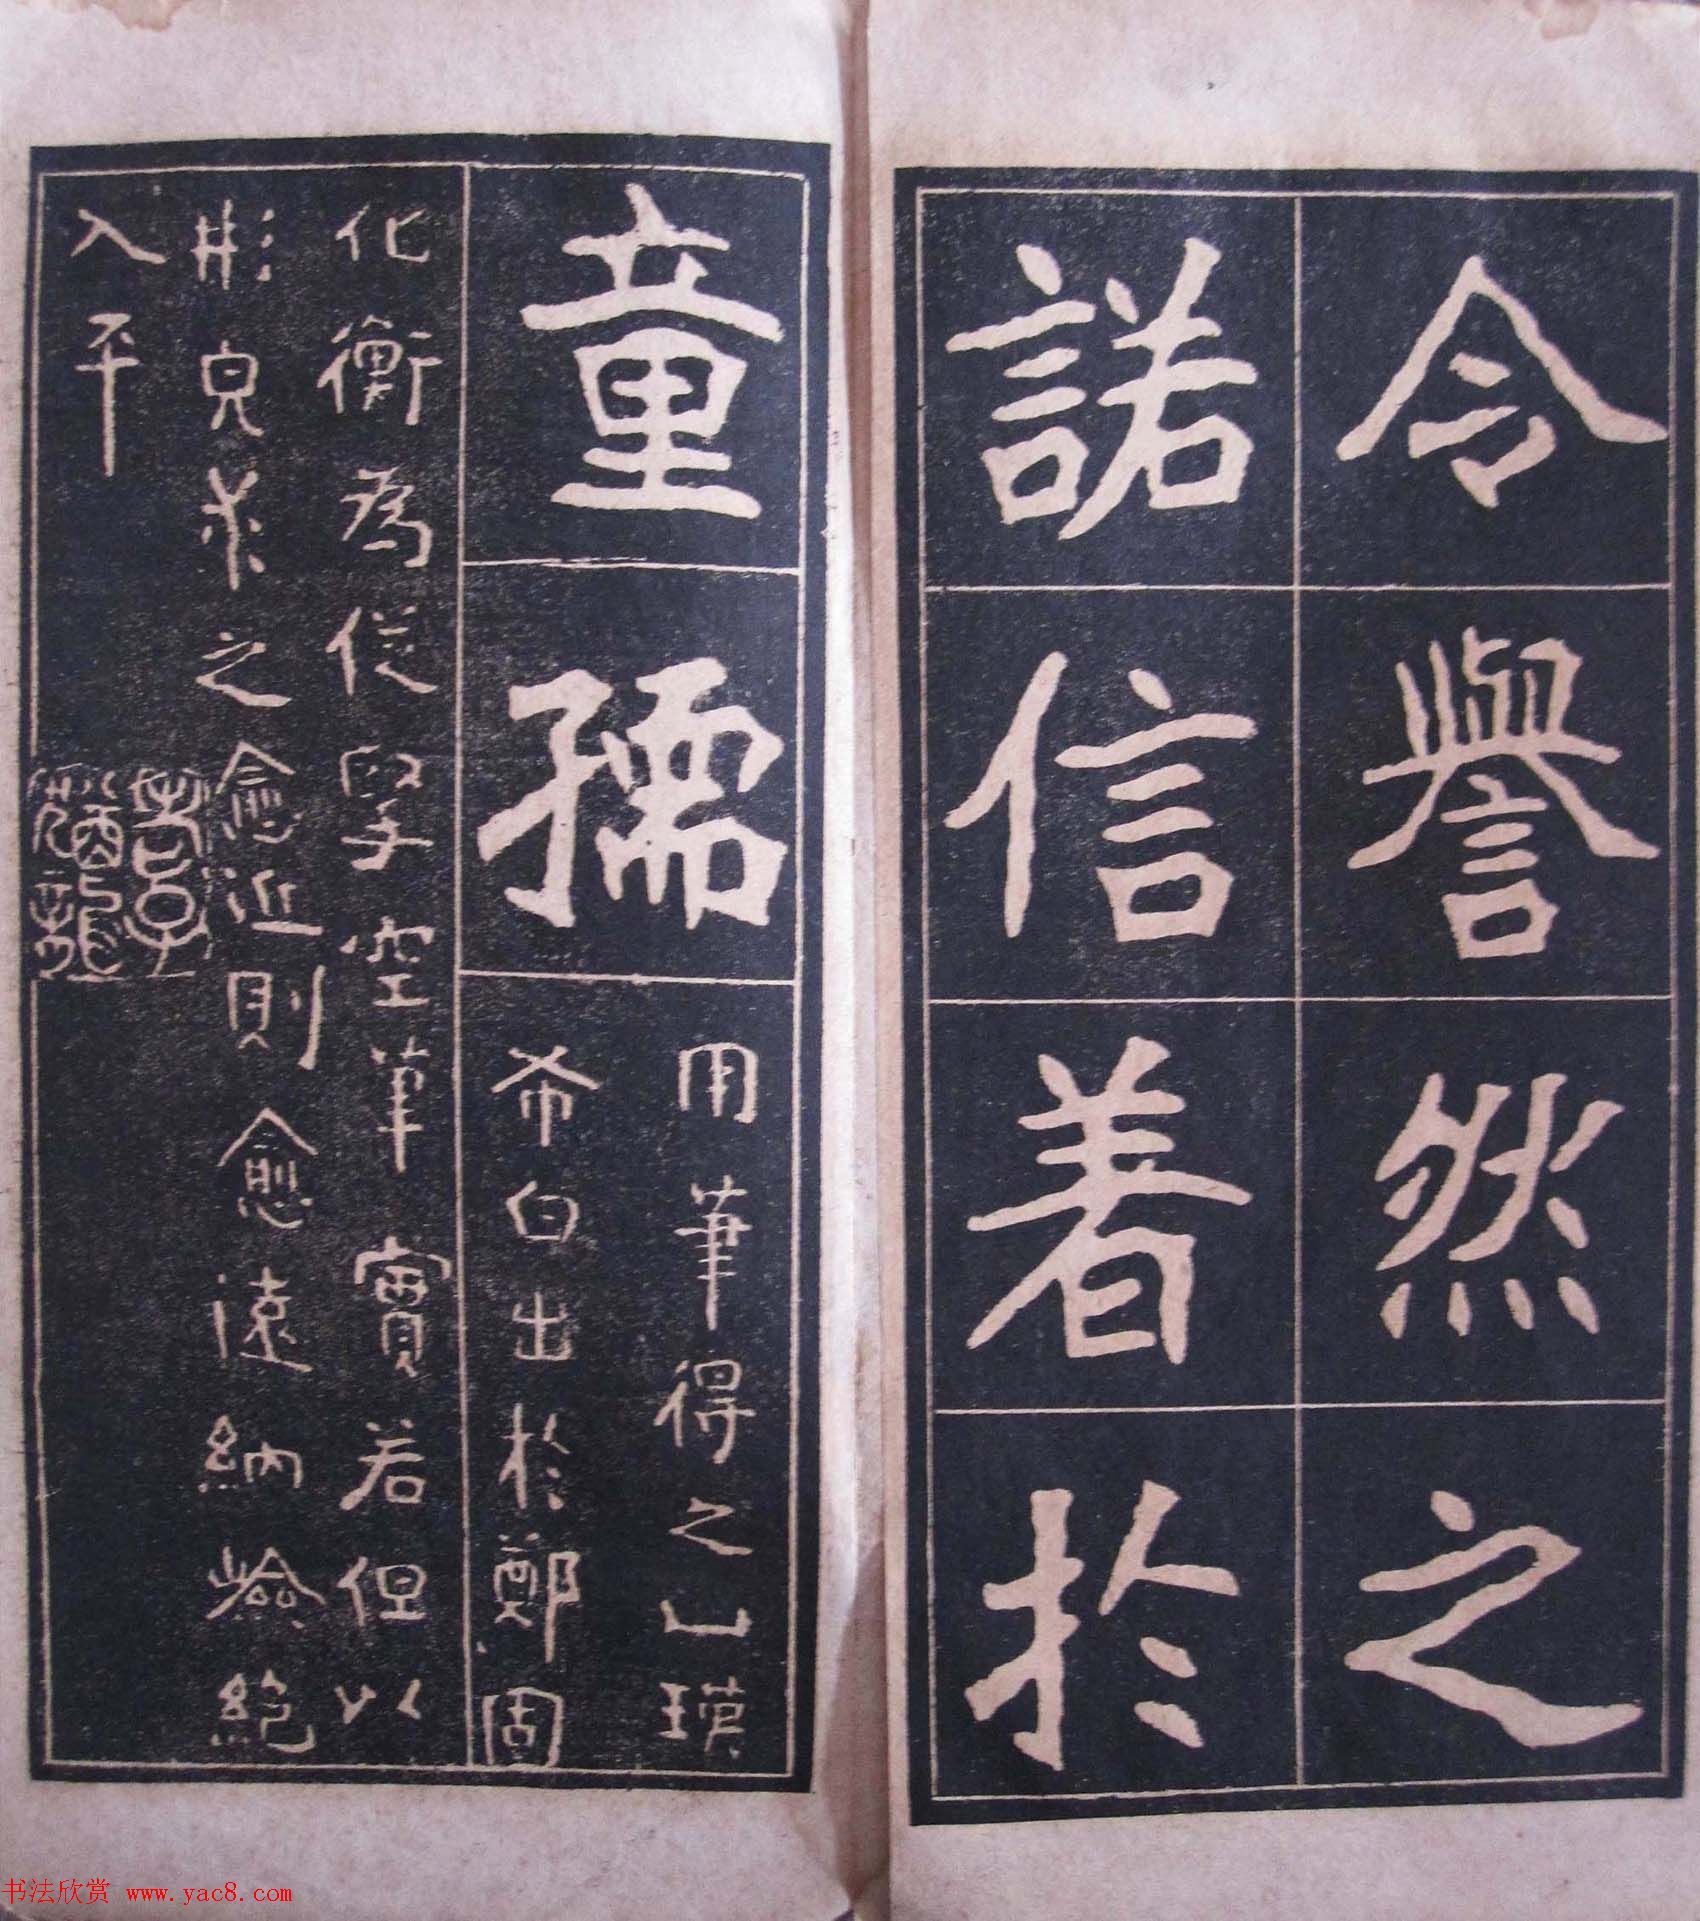 令譽然之
諾信着於
童孺
用筆得之山瑛
希白出於鄭固
化衡為從掔空筆實若但以
形皃求之愈近則愈遠納險絕
入平
书法欣赏 www.yac8.com